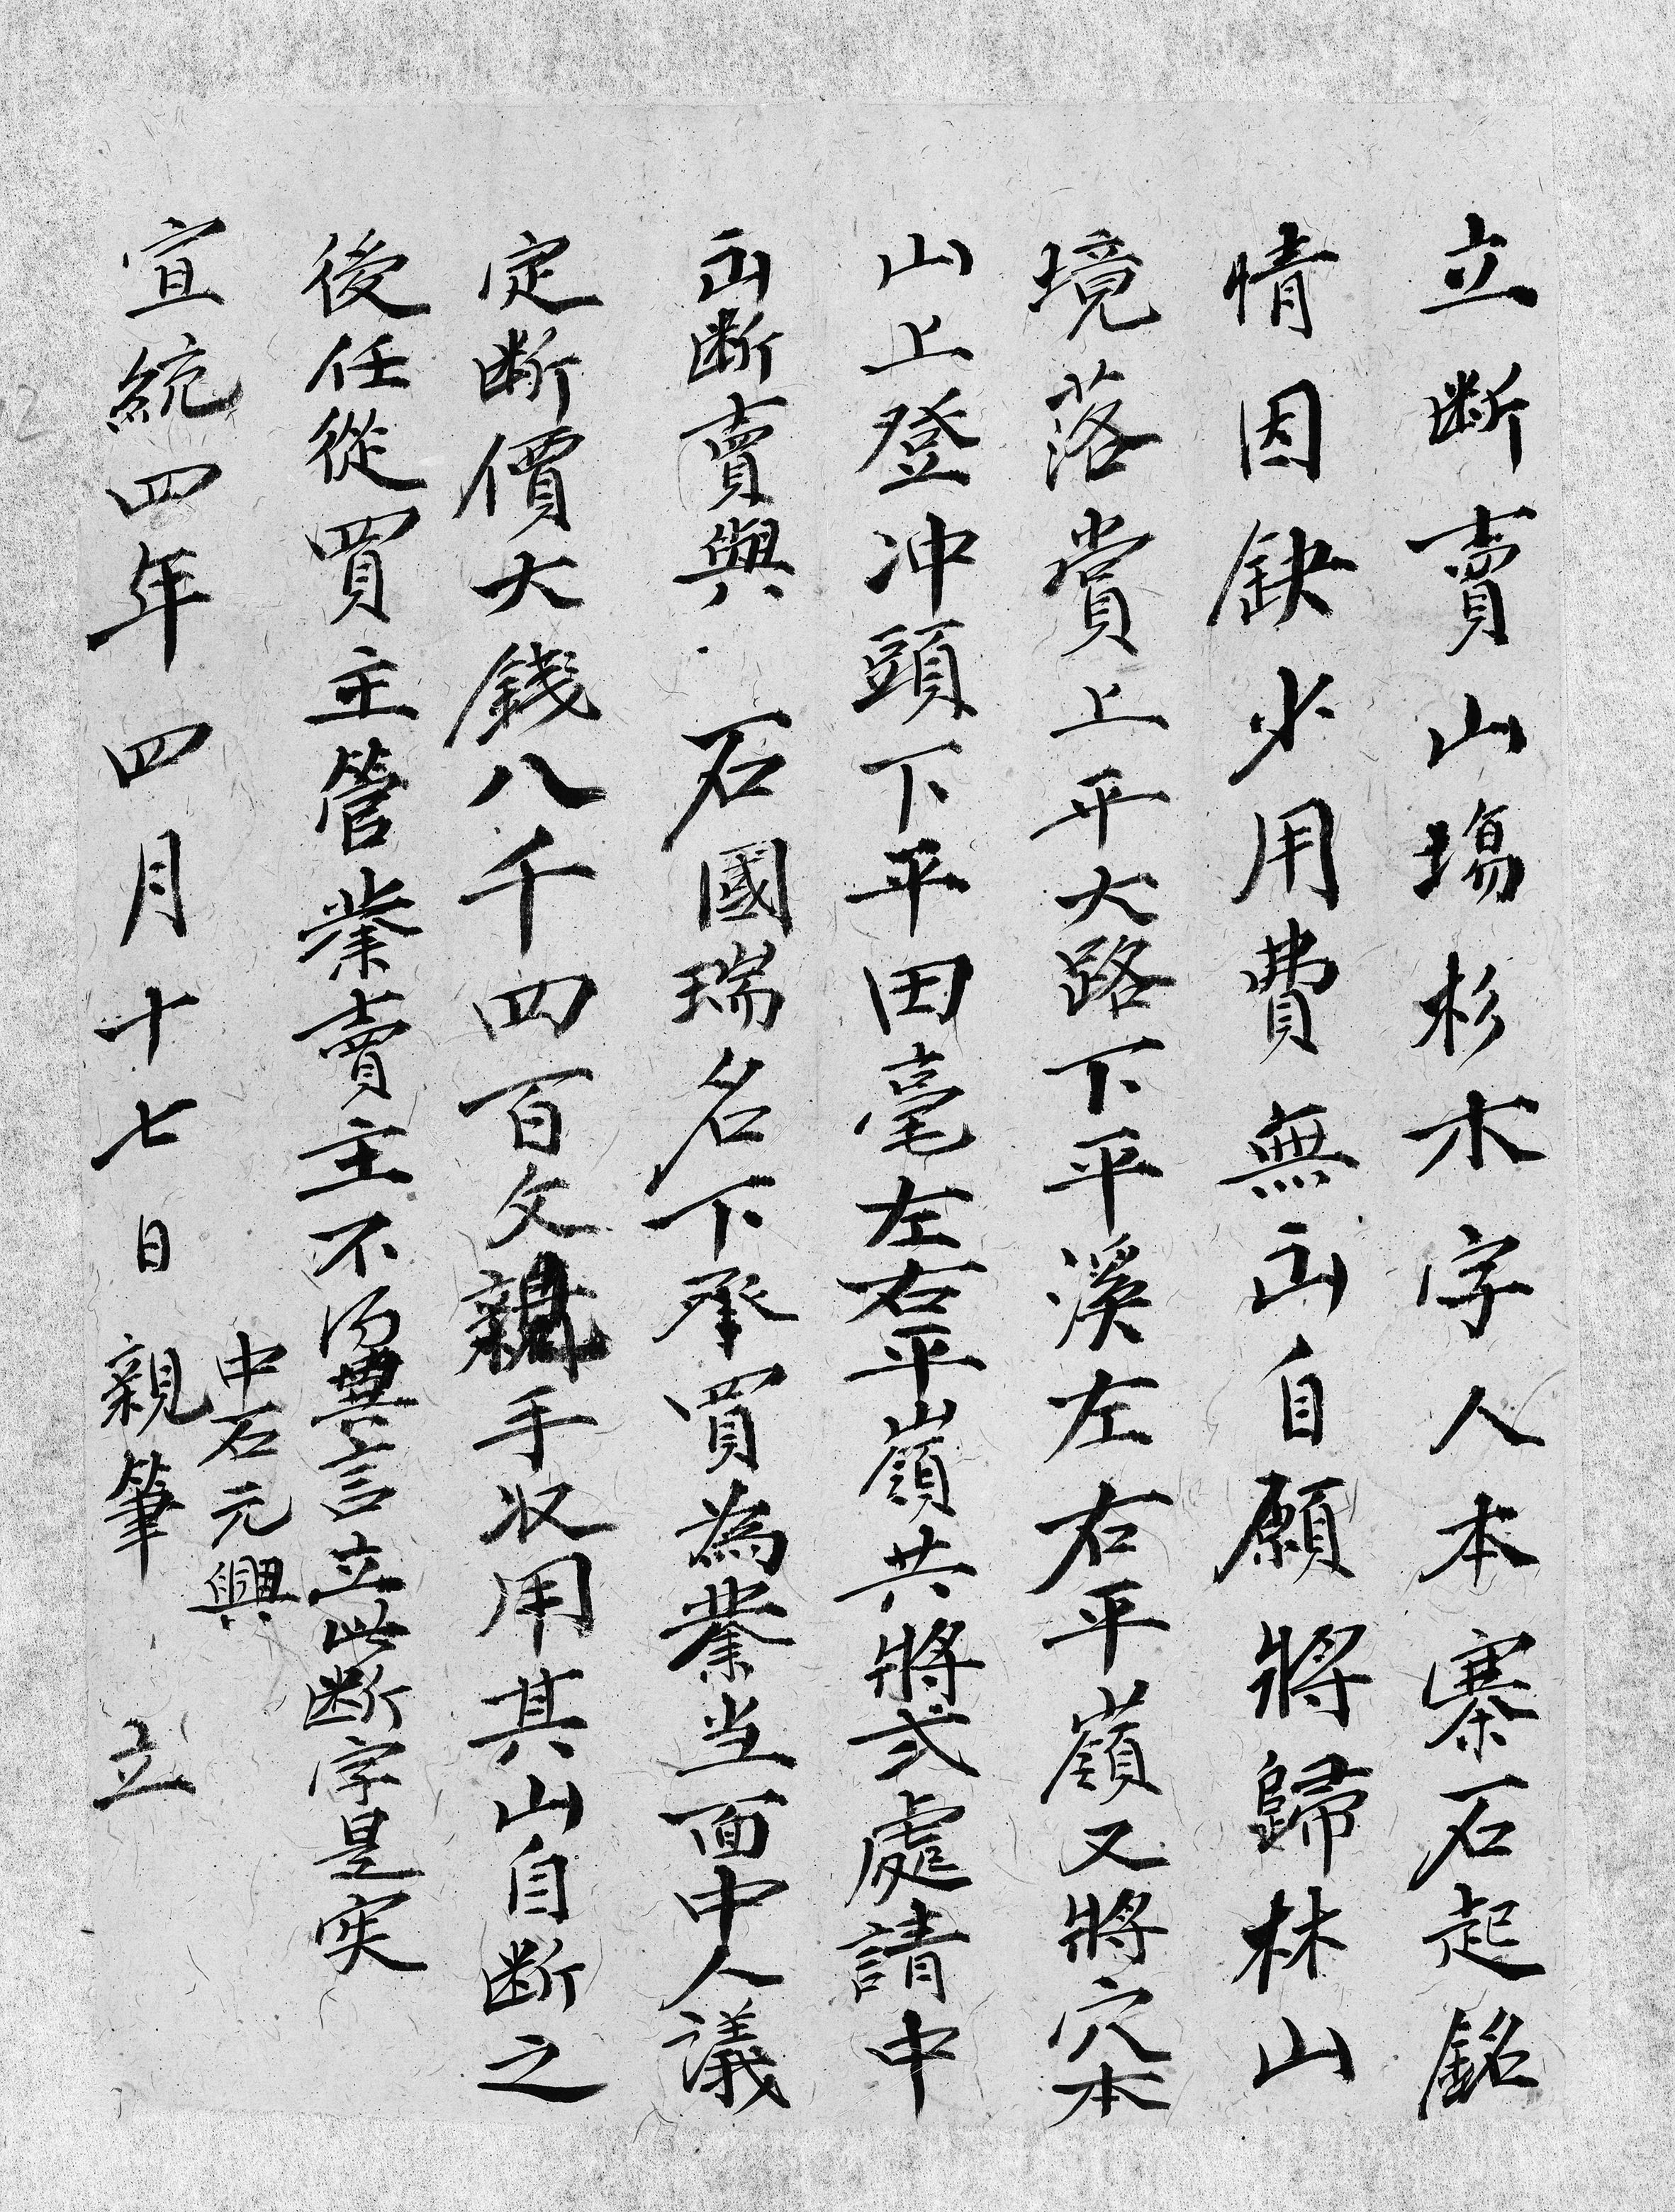 立断賣山塲杉木字人本寨石起銘
情因缺少用費無出自願將歸林山
境落賞上平大路下平溪左右平嶺又將穴本
山上登冲頭下平田毫左右平嶺共將弍處請中
出断賣與石國瑞名下承買為業当面中人議
定断價大錢八千四百文親手收用其山自断之
後任從買主管業賣主不得異言立此断字是实
中石元興
宣統四年四月十七日親筆立